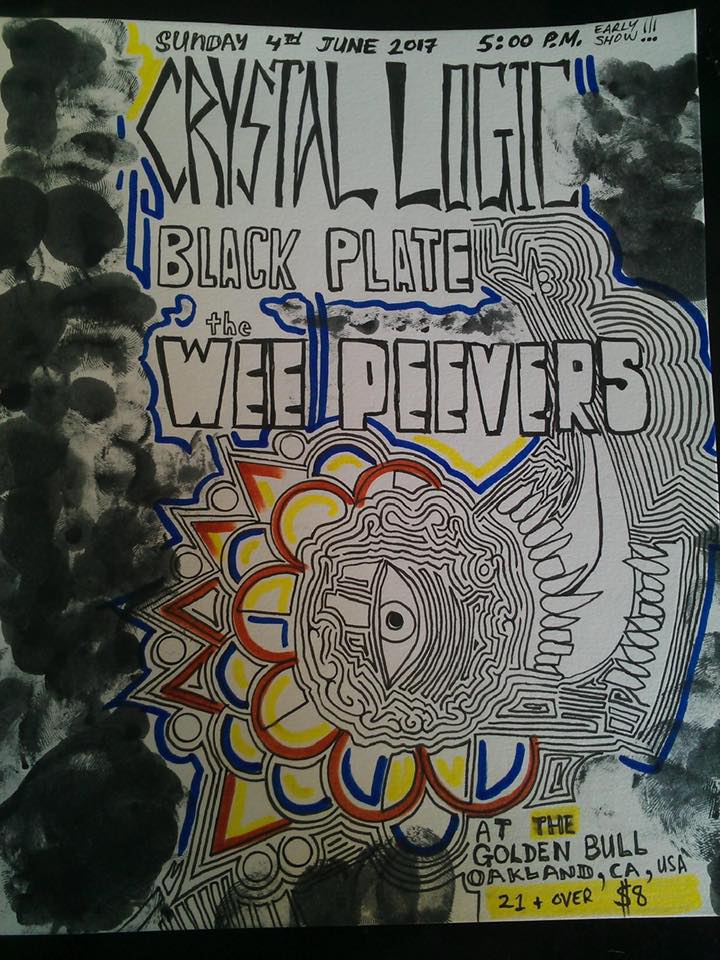 SUNDAY 4TH JUNE 2017 5:00 P.M. EARLY SHOW!!!
CRYSTAL LOGIC
BLACK PLATE
the
WEE PEEVERS
AT THE
GOLDEN BULL
OAKLAND, CA, USA
21 + OVER $8